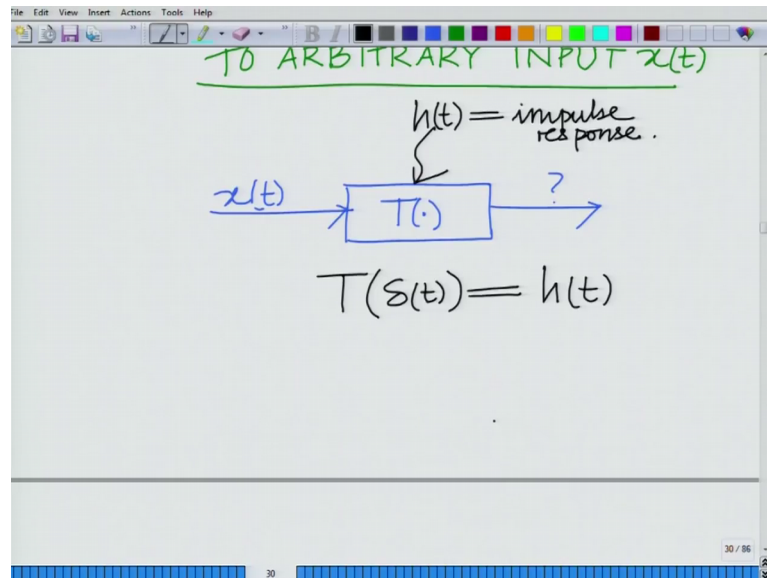 File Edit View Insert Actions Tools Help
B I
TO ARBITRARY INPUT x(t)
h(t) = impulse
response.
x(t)
T(·)
?
T(δ(t)) = h(t)
30 / 86
30